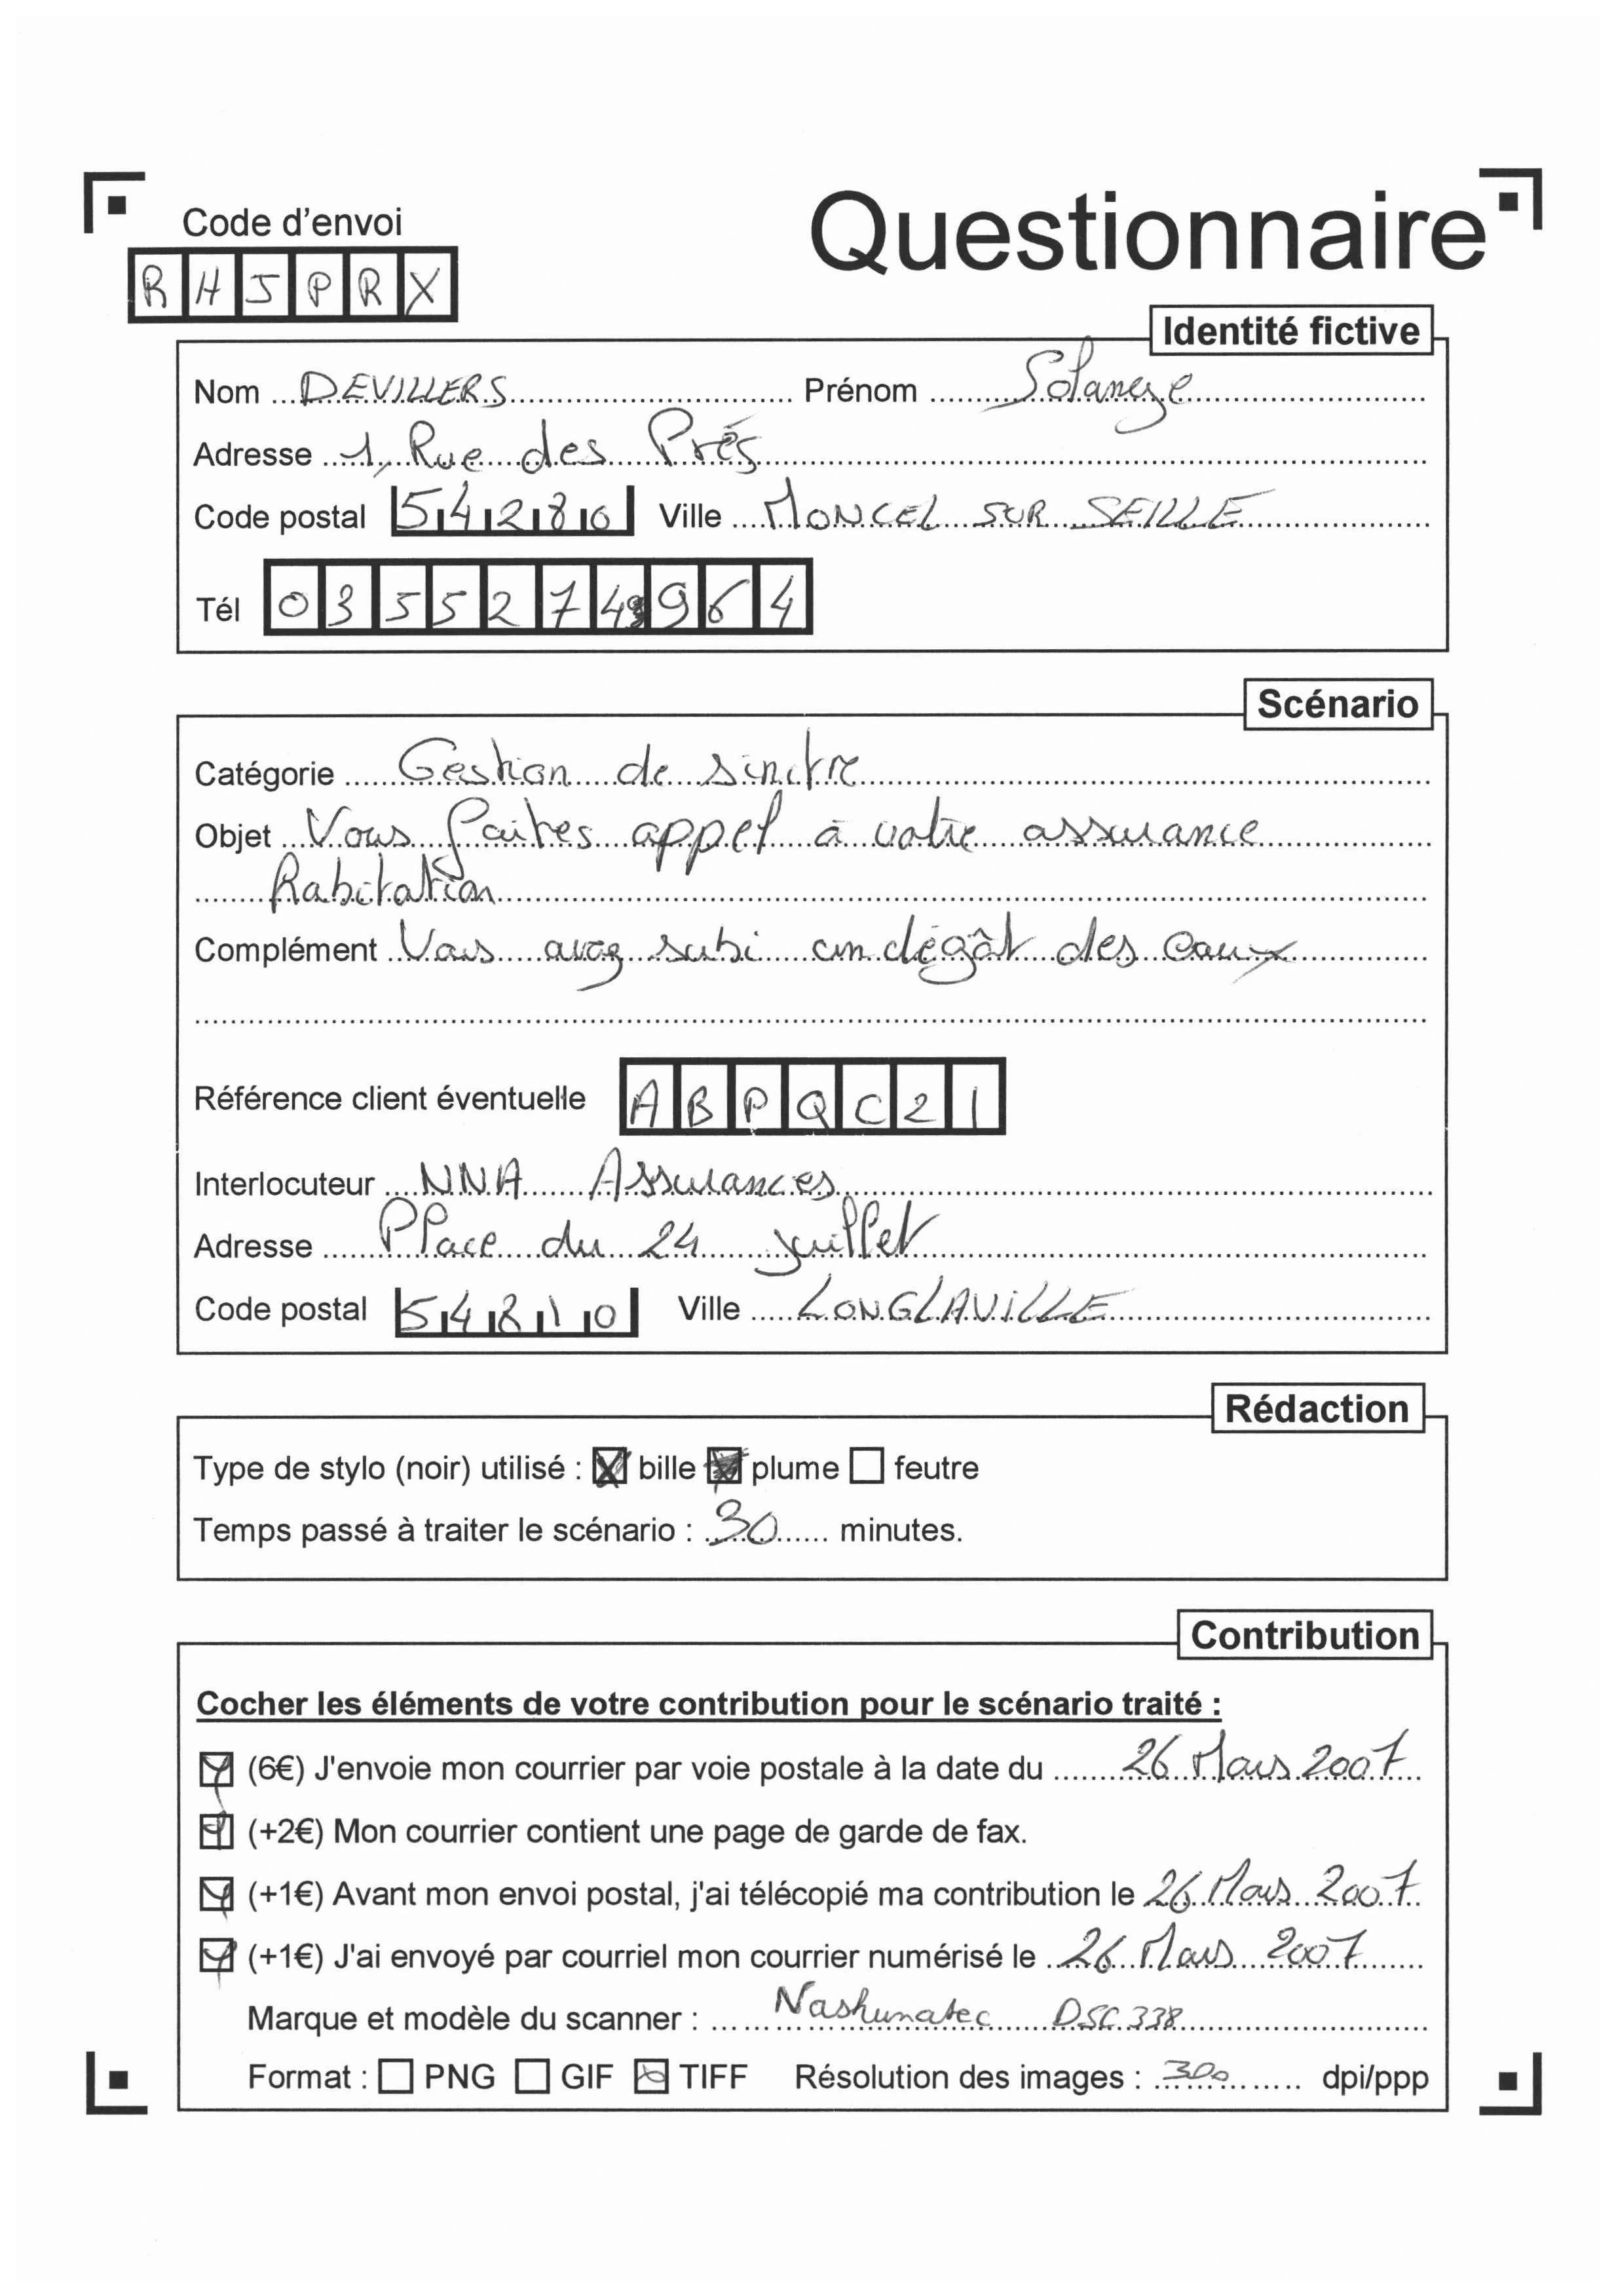 Code d'envoi
Questionnaire
RH5PRX
Identité fictive
Nom DEVILLERS Prénom Solange
Adresse 1, Rue des Prés
Code postal 54280 Ville MONCEL SUR SEILLE
Tél 0355274964
Scénario
Catégorie Gestion de sinitre
Objet Vous faites appel à votre assurance
habitation
Complément Vous avez subi un dégât des eaux
Référence client éventuelle ABPQC21
Interlocuteur NNA Assurances
Adresse Place du 24 juillet
Code postal 54810 Ville LONGLAVILLE
Rédaction
Type de stylo (noir) utilisé : bille plume feutre
Temps passé à traiter le scénario : 30 minutes.
Contribution
Cocher les éléments de votre contribution pour le scénario traité :
(6€) J'envoie mon courrier par voie postale à la date du 26 Mars 2007
(+2€) Mon courrier contient une page de garde de fax.
(+1€) Avant mon envoi postal, j'ai télécopié ma contribution le 26 Mars 2007
(+1€) J'ai envoyé par courriel mon courrier numérisé le 26 Mars 2007
Marque et modèle du scanner : Nashuatec DSC 338
Format : PNG GIF TIFF Résolution des images : 300 dpi/ppp